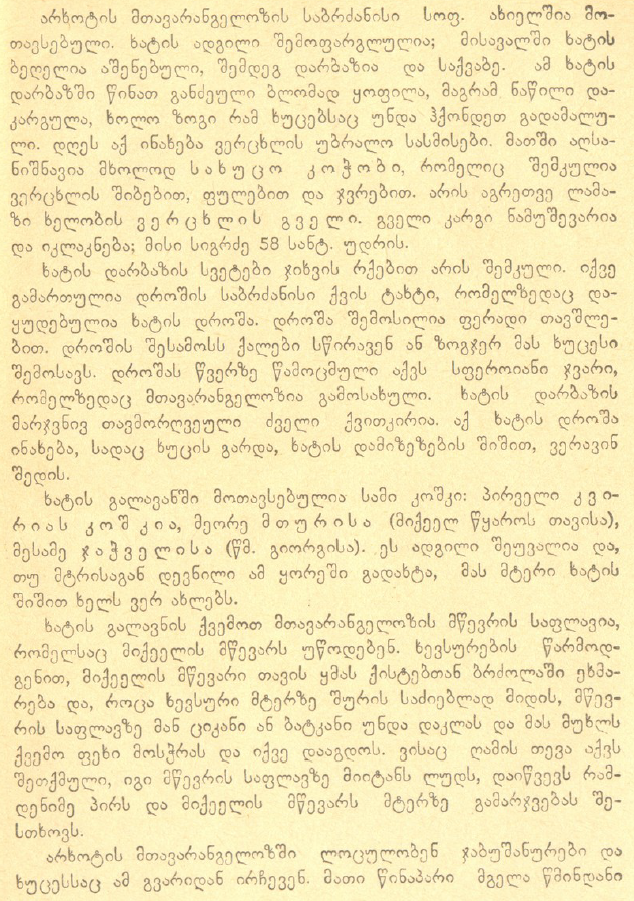 არხოტის მთავარანგელოზის საბრძანისი სოფ. ახიელშია მო-
თავსებული. ხატის ადგილი შემოფარგლულია; მისავალში ხატის
ბეღელია აშენებული, შემდეგ დარბაზია და საქვაბე. ამ ხატის
დარბაზში წინათ განძეული ბლომად ყოფილა, მაგრამ ნაწილი და-
კარგულა, ხოლო ზოგი რამ ხუცებსაც უნდა ჰქონდეთ გადამალუ-
ლი. დღეს აქ ინახება ვერცხლის უბრალო სასმისები. მათში აღსა-
ნიშნავია მხოლოდ ს ა ხ უ ც ო კ ო ჭ ო ბ ი, რომელიც შემკულია
ვერცხლის შიბებით, ფულებით და ჯვრებით. არის აგრეთვე ლამა-
ზი ხელობის ვ ე რ ც ხ ლ ი ს გ ვ ე ლ ი. გველი კარგი ნამუშევარია
და იკლაკნება; მისი სიგრძე 58 სანტ. უდრის.
ხატის დარბაზის სვეტები ჯიხვის რქებით არის შემკული. იქვე
გამართულია დროშის საბრძანისი ქვის ტახტი, რომელზედაც და-
ყუდებულია ხატის დროშა. დროშა შემოსილია ფერადი თავშლე-
ბით. დროშის შესამოსს ქალები სწირავენ ან ზოგჯერ მას ხუცესი
შემოსავს. დროშას წვერზე წამოცმული აქვს სფეროიანი ჯვარი,
რომელზედაც მთავარანგელოზია გამოსახული. ხატის დარბაზის
მარჯვნივ თავმორღვეული ძველი ქვითკირია. აქ ხატის დროშა
ინახება, სადაც ხუცის გარდა, ხატის დამიზეზების შიშით, ვერავინ
შედის.
ხატის გალავანში მოთავსებულია სამი კოშკი: პირველი კ ვ ი-
რ ი ა ს კ ო შ კ ი ა, მეორე მ თ უ რ ი ს ა (მიქეელ წყაროს თავისა),
მესამე ჯ ა ჭ ვ ე ლ ი ს ა (წმ. გიორგისა). ეს ადგილი შეუვალია და,
თუ მტრისაგან დევნილი ამ ყორეში გადახტა, მას მტერი ხატის
შიშით ხელს ვერ ახლებს.
ხატის გალავნის ქვემოთ მთავარანგელოზის მწევრის საფლავია,
რომელსაც მიქეელის მწევარს უწოდებენ. ხევსურების წარმოდ-
გენით, მიქეელის მწევარი თავის ყმას ქისტებთან ბრძოლაში ეხმა-
რება და, როცა ხევსური მტერზე შურის საძიებლად მიდის, მწევ-
რის საფლავზე მან ციკანი ან ბატკანი უნდა დაკლას და მას მუხლს
ქვემო ფეხი მოსჭრას და იქვე დააგდოს. ვისაც ღამის თევა აქვს
შეთქმული, იგი მწევრის საფლავზე მიიტანს ლუდს, დაიწვევს რამ-
დენიმე პირს და მიქეელის მწევარს მტერზე გამარჯვებას შე-
სთხოვს.
არხოტის მთავარანგელოზში ლოცულობენ ჯაბუშანურები და
ხუცესსაც ამ გვარიდან ირჩევენ. მათი წინაპარი მგელა წმინდანი